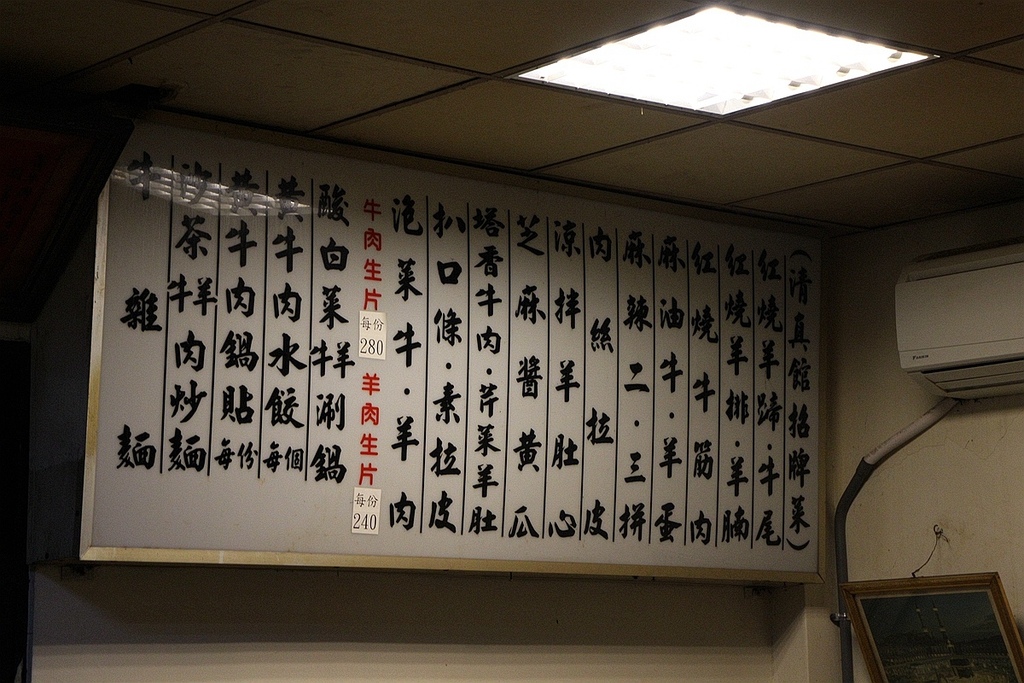 (清真館招牌菜)
紅燒羊蹄·牛尾
紅燒羊排·羊腩
紅燒牛筋肉
麻油牛·羊蛋
麻辣二·三拼
肉絲拉皮
涼拌羊肚心
芝麻醬黃瓜
塔香牛肉·芹菜羊肚
扒口條·素拉皮
泡菜牛·羊肉
牛肉生片 每份 280 羊肉生片 每份 240
酸白菜牛羊涮鍋
黃牛肉水餃每個
黃牛肉鍋貼每份
沙茶牛羊肉炒麵
牛雜麵